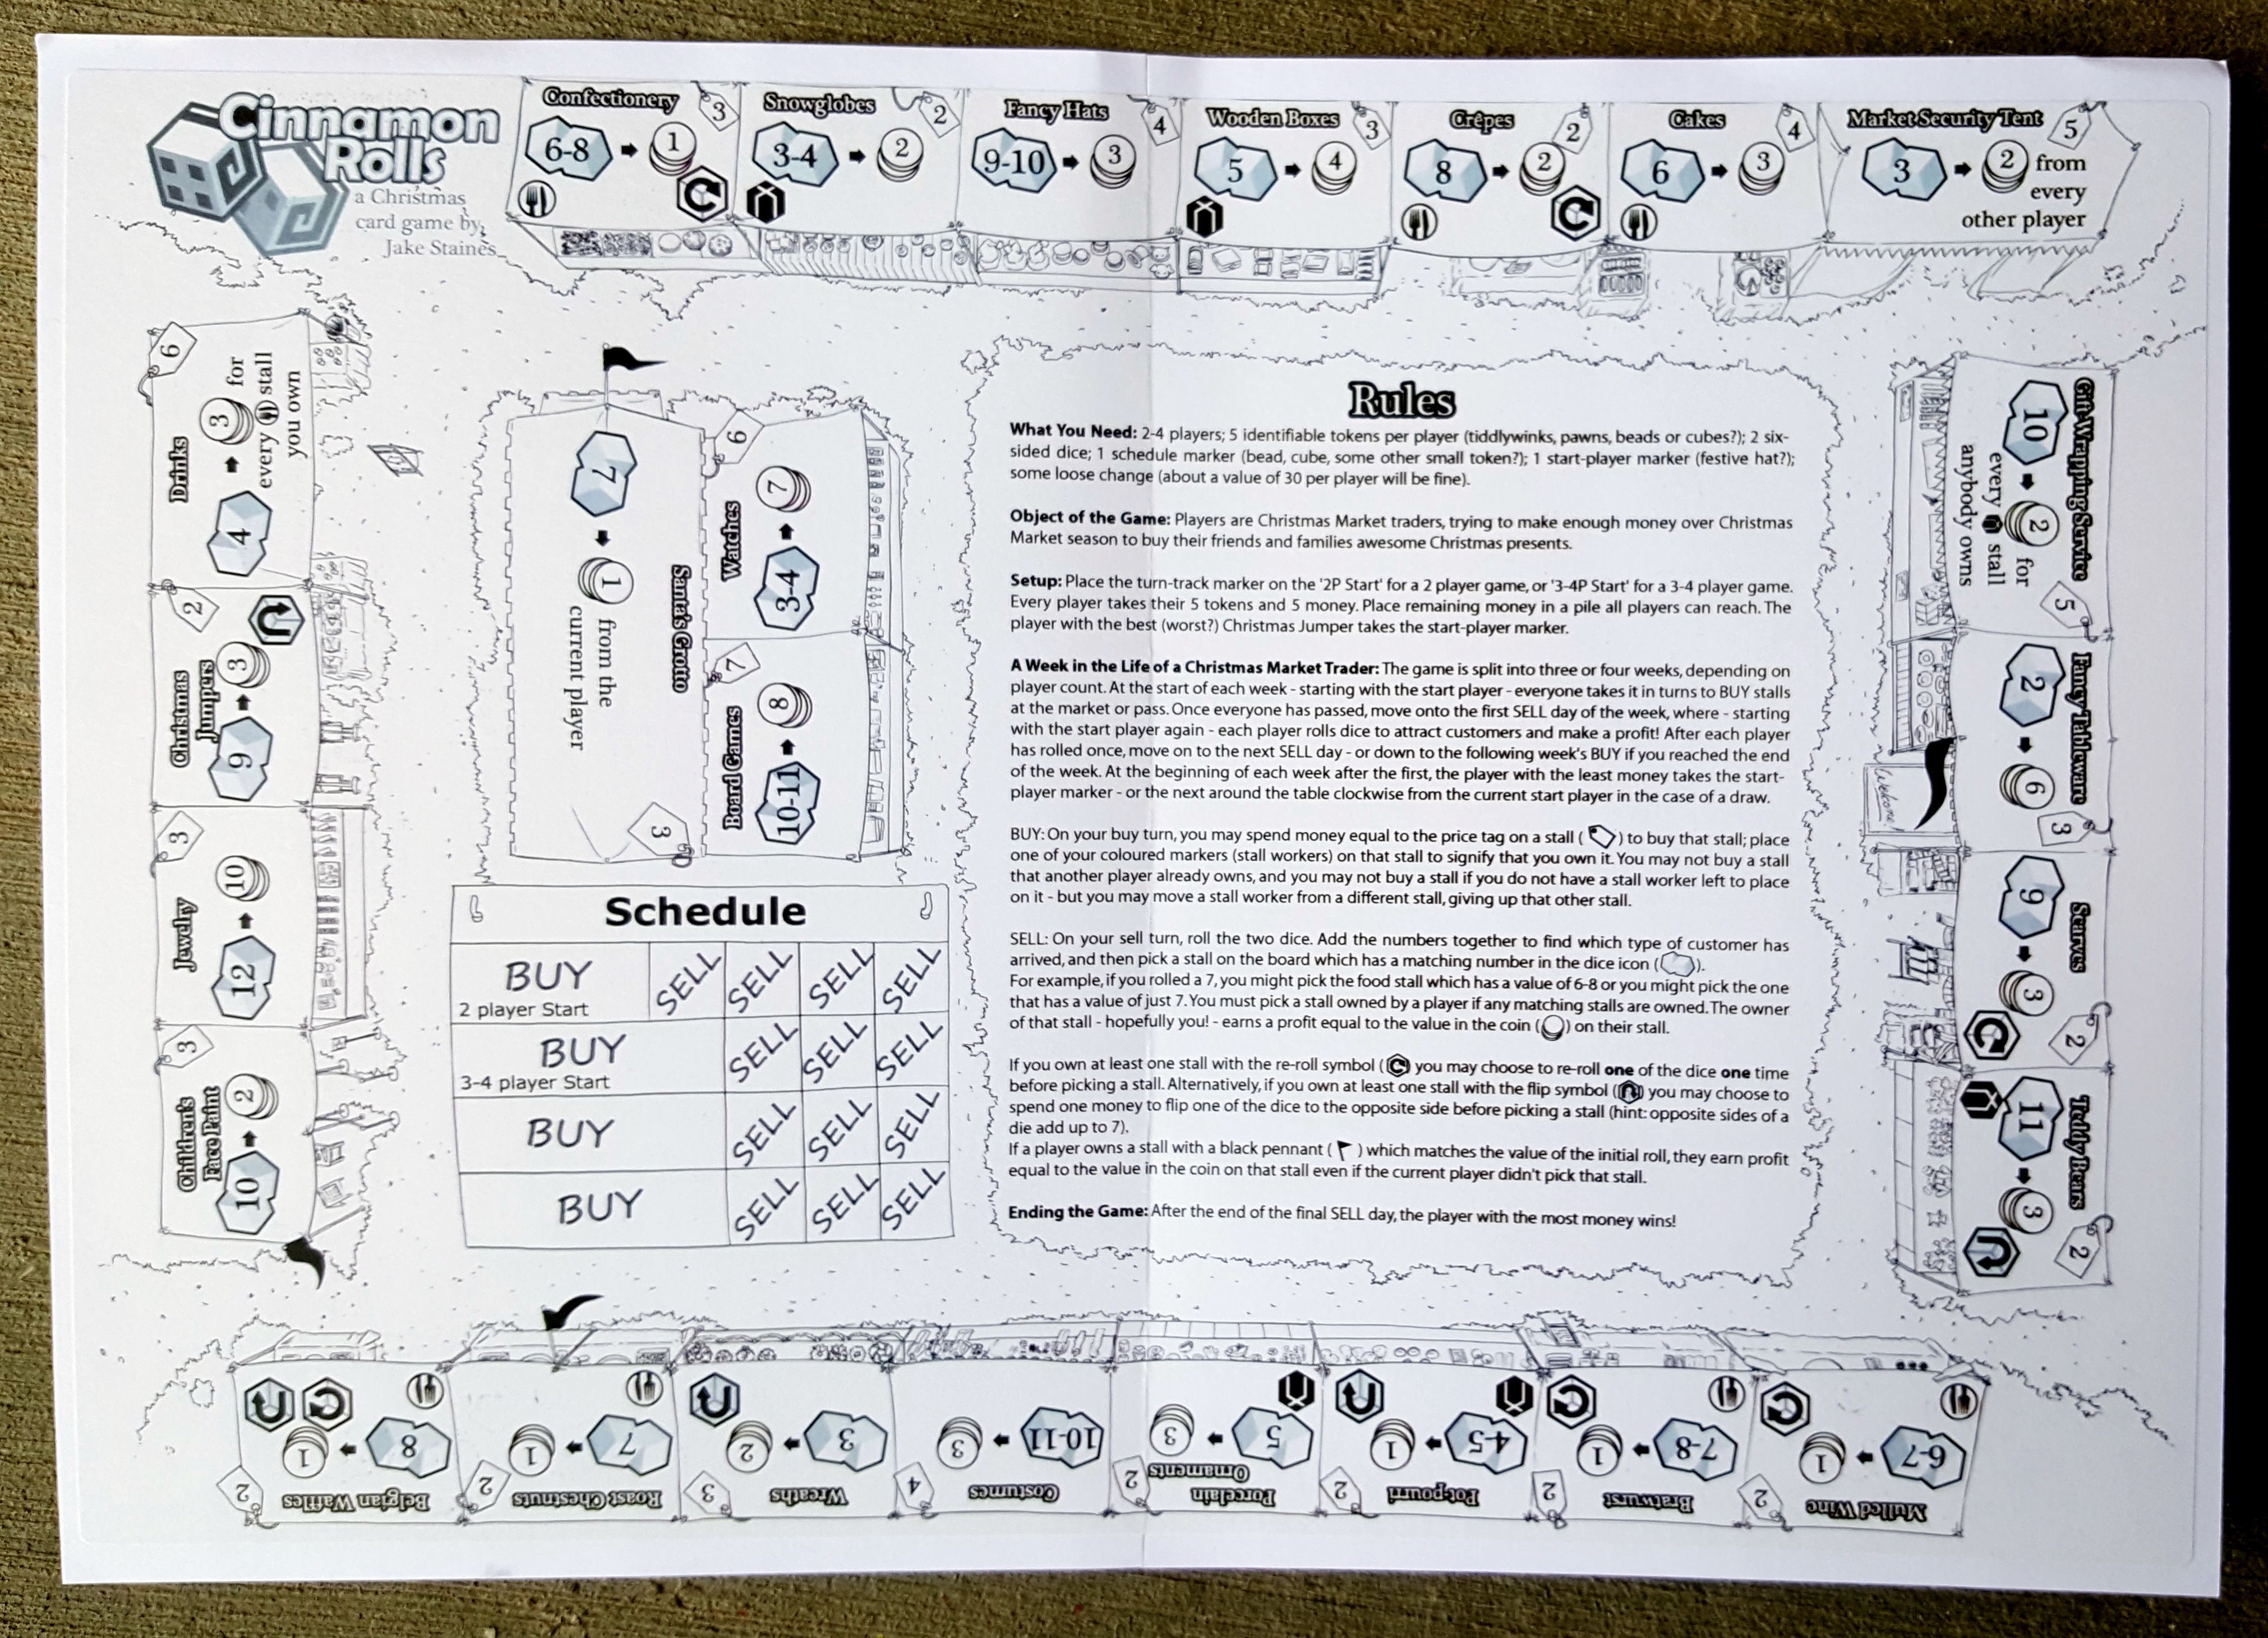 Cinnamon
Rolls
a Christmas
card game by
Jake Staines
Confectionery
3
6-8
1
Snowglobes
2
3-4
2
Fancy Hats
4
9-10
3
Wooden Boxes
3
5
4
Crêpes
2
8
2
Cakes
4
6
3
Market Security Tent
5
3
2 from
every
other player
Gift-Wrapping Service
10
2 for
every stall
anybody owns
5
Fancy Tableware
2
6
3
Scarves
9
3
2
Teddy Bears
11
3
2
Welcome!
Drinks
6
4
3 for
every stall
you own
Christmas
Jumpers
2
9
3
Jewelry
3
12
10
Children's
Face Paint
3
10
2
Santa's Grotto
7
1 from the
current player
3
Watches
6
3-4
7
Board Games
7
10-11
8
Schedule
BUY SELL SELL SELL SELL
2 player Start
BUY SELL SELL SELL
3-4 player Start
BUY SELL SELL SELL
BUY SELL SELL SELL
Rules
What You Need: 2-4 players; 5 identifiable tokens per player (tiddlywinks, pawns, beads or cubes?); 2 six-
sided dice; 1 schedule marker (bead, cube, some other small token?); 1 start-player marker (festive hat?);
some loose change (about a value of 30 per player will be fine).
Object of the Game: Players are Christmas Market traders, trying to make enough money over Christmas
Market season to buy their friends and families awesome Christmas presents.
Setup: Place the turn-track marker on the '2P Start' for a 2 player game, or '3-4P Start' for a 3-4 player game.
Every player takes their 5 tokens and 5 money. Place remaining money in a pile all players can reach. The
player with the best (worst?) Christmas Jumper takes the start-player marker.
A Week in the Life of a Christmas Market Trader: The game is split into three or four weeks, depending on
player count. At the start of each week - starting with the start player - everyone takes it in turns to BUY stalls
at the market or pass. Once everyone has passed, move onto the first SELL day of the week, where - starting
with the start player again - each player rolls dice to attract customers and make a profit! After each player
has rolled once, move on to the next SELL day - or down to the following week's BUY if you reached the end
of the week. At the beginning of each week after the first, the player with the least money takes the start-
player marker - or the next around the table clockwise from the current start player in the case of a draw.
BUY: On your buy turn, you may spend money equal to the price tag on a stall ( ) to buy that stall; place
one of your coloured markers (stall workers) on that stall to signify that you own it. You may not buy a stall
that another player already owns, and you may not buy a stall if you do not have a stall worker left to place
on it - but you may move a stall worker from a different stall, giving up that other stall.
SELL: On your sell turn, roll the two dice. Add the numbers together to find which type of customer has
arrived, and then pick a stall on the board which has a matching number in the dice icon ( ).
For example, if you rolled a 7, you might pick the food stall which has a value of 6-8 or you might pick the one
that has a value of just 7. You must pick a stall owned by a player if any matching stalls are owned. The owner
of that stall - hopefully you! - earns a profit equal to the value in the coin ( ) on their stall.
If you own at least one stall with the re-roll symbol ( ) you may choose to re-roll one of the dice one time
before picking a stall. Alternatively, if you own at least one stall with the flip symbol ( ) you may choose to
spend one money to flip one of the dice to the opposite side before picking a stall (hint: opposite sides of a
die add up to 7).
If a player owns a stall with a black pennant ( ) which matches the value of the initial roll, they earn profit
equal to the value in the coin on that stall even if the current player didn't pick that stall.
Ending the Game: After the end of the final SELL day, the player with the most money wins!
Mulled Wine
2
6-7
1
Bratwurst
2
7-8
1
Potpourri
2
4-5
1
Porcelain
Ornaments
2
5
3
Costumes
4
10-11
3
Wreaths
3
3
2
Roast Chestnuts
2
7
1
Belgian Waffles
2
8
1